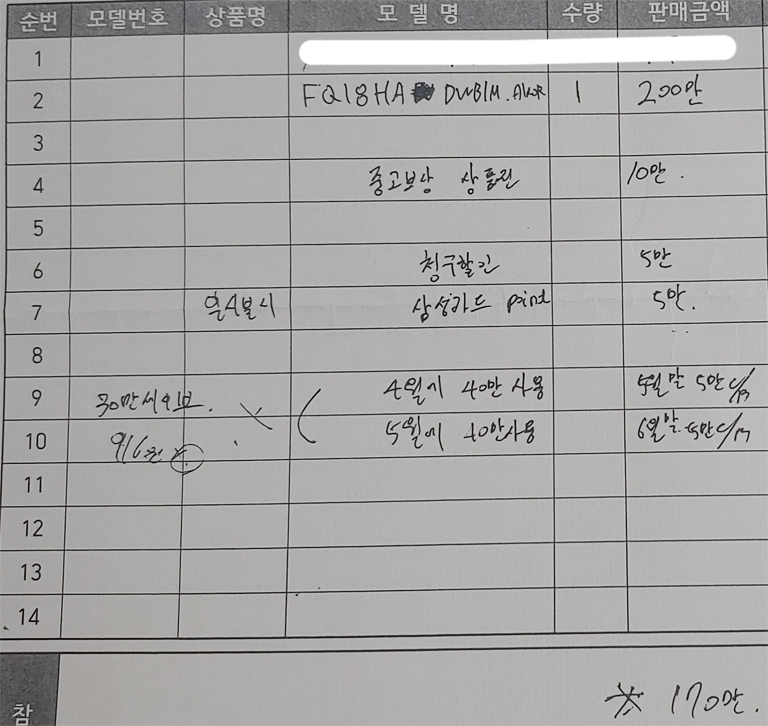 순번 모델번호 상품명 모 델 명 수량 판매금액
1
2 FQ18HA DWB1M.AKOR 1 200만
3
4 중고보상 상품권 10만.
5
6 청구할인 5만
7 일시불시 삼성카드 point 5만.
8
9 30만세이브. 4월에 40만 사용 5월말 5만
10 5월에 40만사용 6월말 5만
11
12
13
14
참
※ 170만.